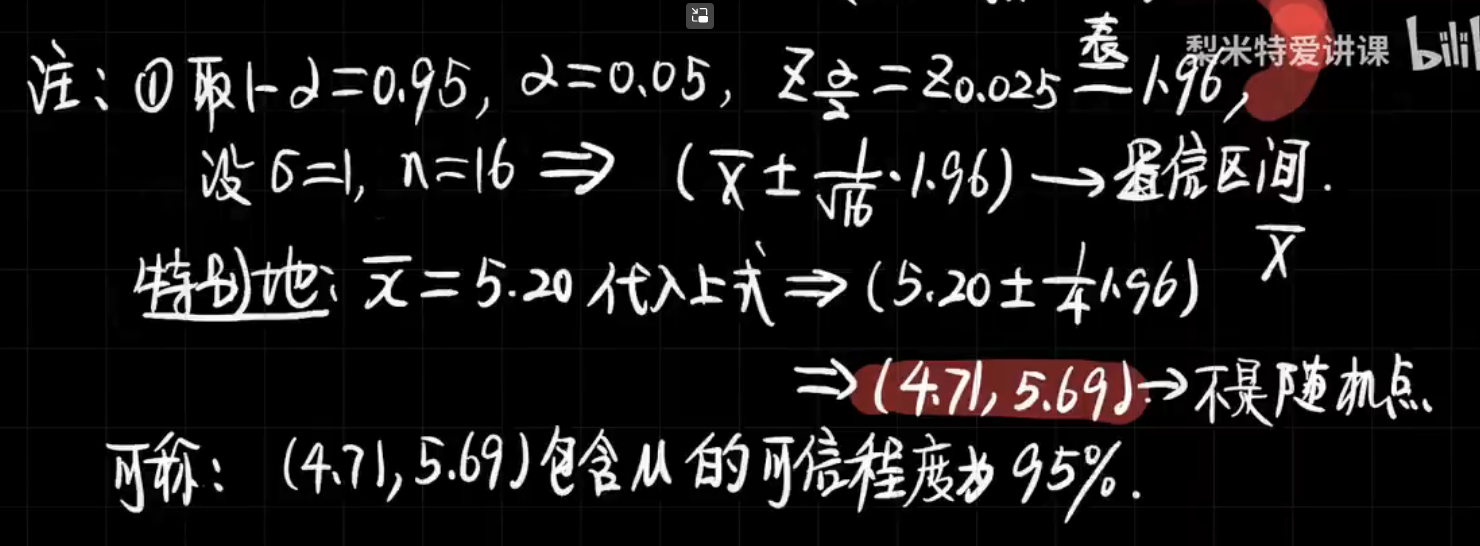 梨米特爱讲课 bili
注：① 取1-α=0.95, α=0.05, Z_{α/2}=Z_{0.025} 查表= 1.96,
设σ=1, n=16 ⇒ (X̄ ± 1/√16 · 1.96) → 置信区间.
X̄
特别地: x̄ = 5.20 代入上式 ⇒ (5.20 ± 1/4 1.96)
⇒ (4.71, 5.69) → 不是随机点
可称: (4.71, 5.69) 包含μ的可信程度为95%.